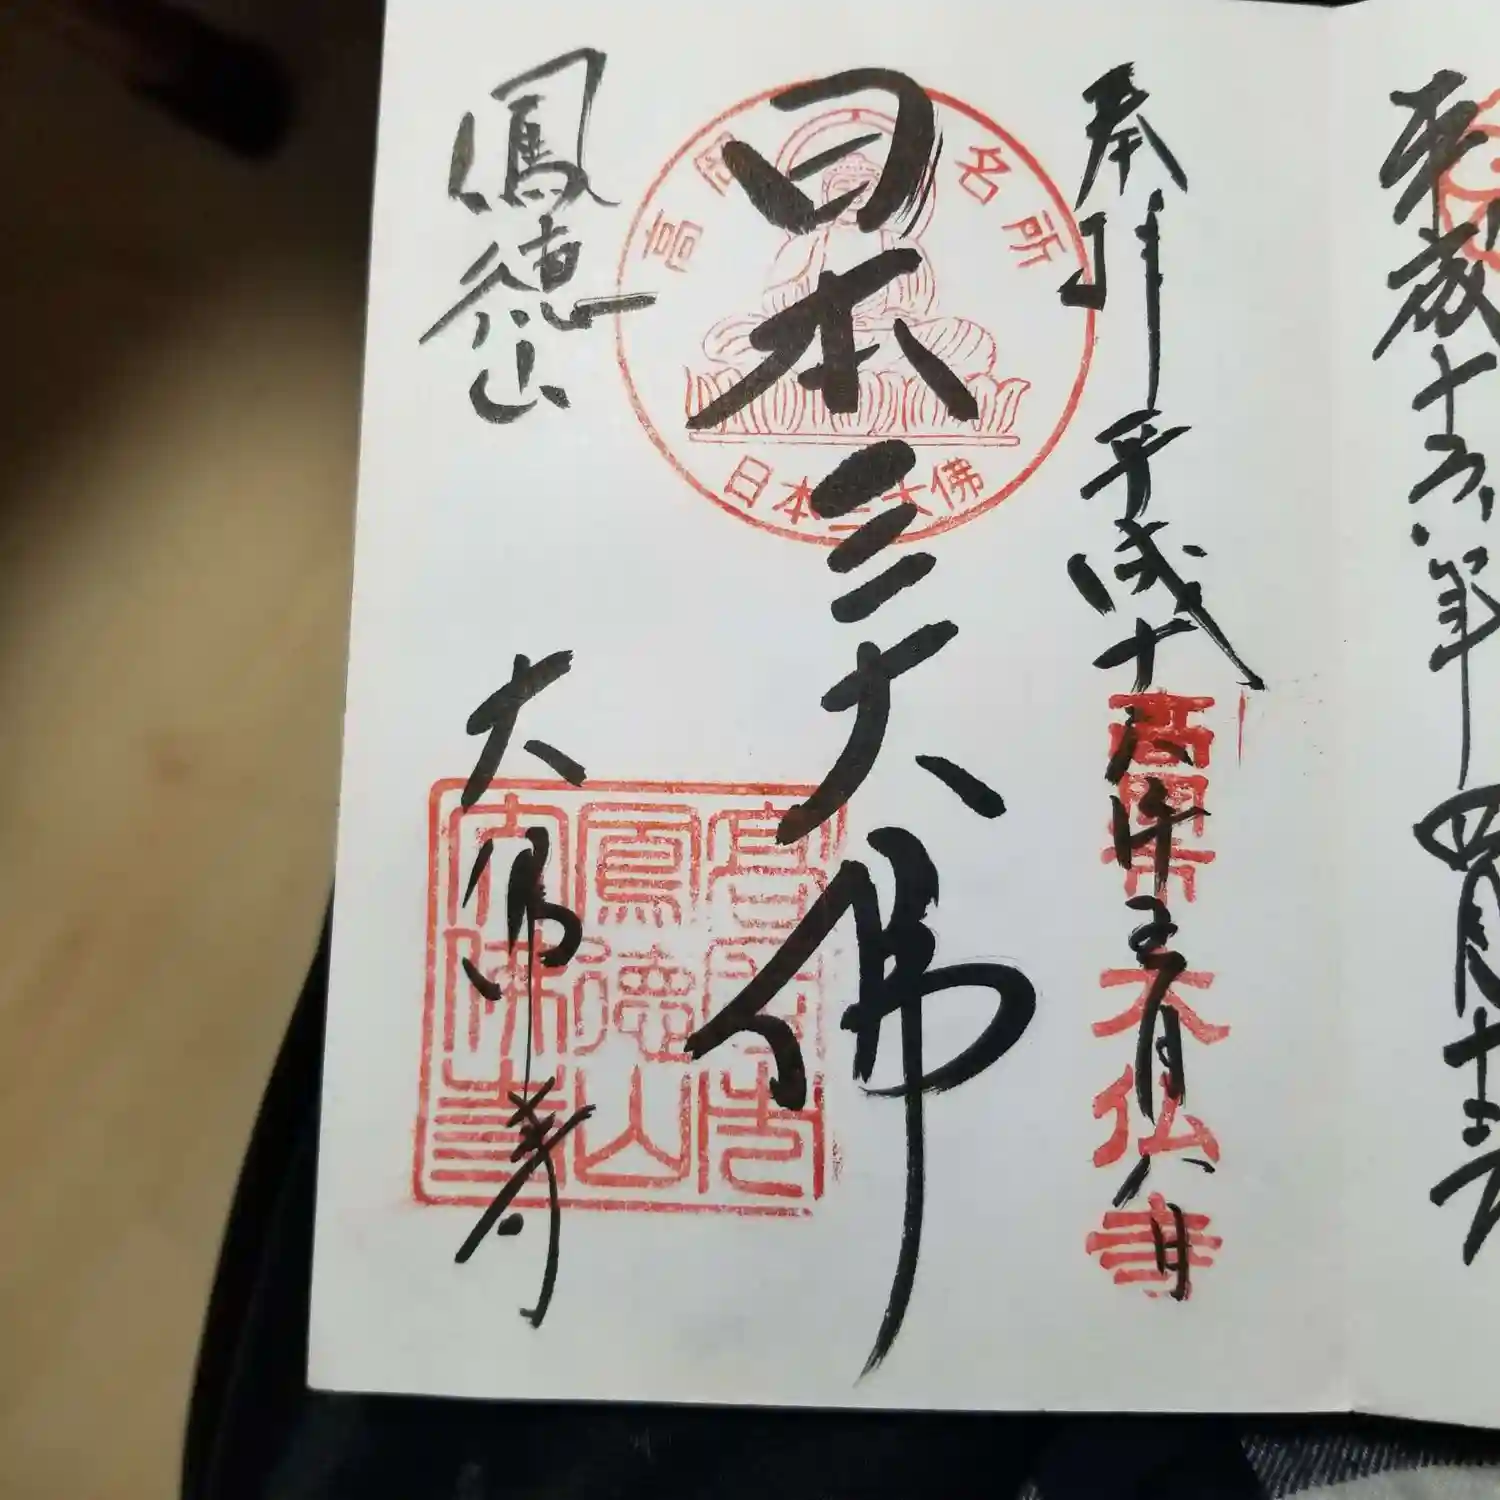 平成十六年四月十五
奉拝 平成十六年五月八日
高岡市大仏寺
日本三大佛
高岡名所
日本三大佛
鳳徳山
大佛寺
高岡古
鳳徳山
大佛寺